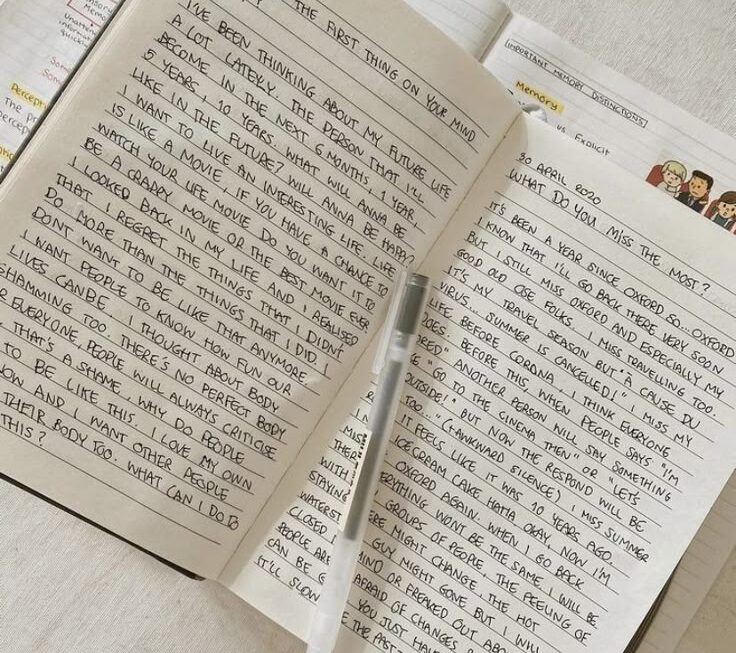 THE FIRST THING ON YOUR MIND
I'VE BEEN THINKING ABOUT MY FUTURE LIFE
A LOT LATELY. THE PERSON THAT I'LL
BECOME IN THE NEXT 6 MONTHS, 1 YEAR
5 YEARS, 10 YEARS. WHAT WILL ANNA BE
LIKE IN THE FUTURE? WILL ANNA BE HAPPY?
I WANT TO LIVE AN INTERESTING LIFE. LIFE
IS LIKE A MOVIE, IF YOU HAVE A CHANCE TO
WATCH YOUR LIFE MOVIE DO YOU WANT IT TO
BE A CRAPPY MOVIE OR THE BEST MOVIE EVER
I LOOKED BACK IN MY LIFE AND I REALISED
THAT I REGRET THE THINGS THAT I DIDN'T
DO MORE THAN THE THINGS THAT I DID. I
DONT WANT TO BE LIKE THAT ANYMORE.
I WANT PEOPLE TO KNOW HOW FUN OUR
LIVES CANBE. I THOUGHT ABOUT BODY
SHAMMING TOO. THERE'S NO PERFECT BODY
EVERYONE, PEOPLE WILL ALWAYS CRITICISE
THAT'S A SHAME, WHY DO PEOPLE
TO BE LIKE THIS. I LOVE MY OWN
NOW AND I WANT OTHER PEOPLE
THEIR BODY TOO. WHAT CAN I DO TO
THIS?
30 APRIL 2020
WHAT DO YOU MISS THE MOST?
IT'S BEEN A YEAR SINCE OXFORD SO... OXFORD
I KNOW THAT I'LL GO BACK THERE VERY SOON
BUT I STILL MISS OXFORD AND ESPECIALLY MY
GOOD OLD CIE FOLKS. I MISS TRAVELLING TOO.
IT'S MY TRAVEL SEASON BUT "À CAUSE DU
VIRUS... SUMMER IS CANCELLED!" I MISS MY
LIFE BEFORE CORONA. I THINK EVERYONE
DOES. BEFORE THIS, WHEN PEOPLE SAYS "I'M
ANOTHER PERSON WILL SAY SOMETHING
"GO TO THE CINEMA THEN" OR "LET'S
OUTSIDE!" BUT NOW THE RESPOND WILL BE
TOO..." (+AWKWARD SILENCE) I MISS SUMMER
IT FEELS LIKE IT WAS 10 YEARS AGO.
ICE CREAM CAKE HAHA OKAY, NOW I'M
OXFORD AGAIN. WHEN I GO BACK
EVERYTHING WONT BE THE SAME, I WILL BE
WITH
STAYING
GROUPS OF PEOPLE, THE FEELING OF
MIGHT CHANGE, THE HOT
CLOSED
GUY MIGHT GONE BUT I WILL
PEOPLE ARE
MIND OR FREAKED OUT
CAN BE
AFRAID OF CHANGES
IT'LL SLOW
YOU JUST
THE PAST
IMPORTANT MEMORY DISTINCTIONS
Memory
vs. Explicit